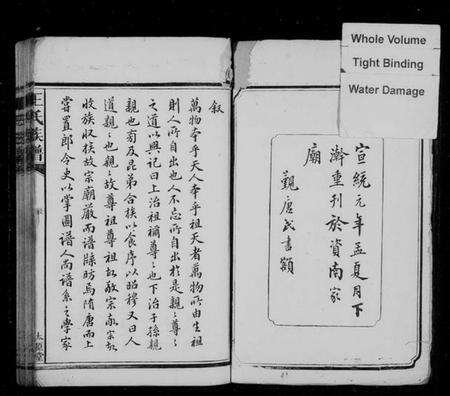 Whole Volume
Tight Binding
Water Damage
宣統元年孟夏月下
澣重刊於資南家
廟
觀唐氏書額
敘
萬物本乎天人本乎祖天者萬物所由生祖
則人所自出也人不忘所自出於是親親尊尊
之道以興記曰上治祖禰尊尊也下治子孫親
親也旁及昆弟合族以食序以昭穆又曰人
道親親也親親故尊祖尊祖故敬宗敬宗故
收族收族故宗廟嚴而譜牒昉焉隋唐而上
嘗置郎令史以掌圖譜人尚譜系之學家
王氏族譜
太原堂